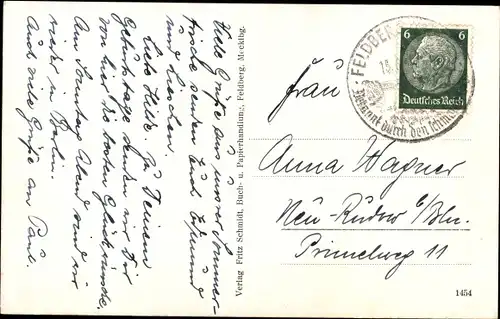 Viele Grüße aus unsrer Sommer-
frische senden Euch Edmund
und Lieschen.
Liebe Hilde. Zu Deinem
Geburtstage senden wir Dir
von hier die besten Glückwünsche.
Am Sonntag Abend sind wir
wieder in Berlin.
Auch viele Grüße an Paul.
Verlag Fritz Schmidt, Buch- u. Papierhandlung, Feldberg, Mecklbg.
FELDBER
bekannt durch den
6 6
Deutsches Reich
Frau
Anna Wagner
Neu-Rudow b/Bln.
Primelweg 11
1454